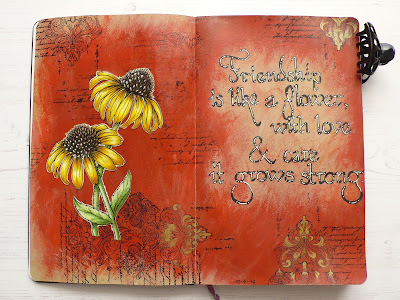 Friendship
is like a flower,
with love
& care
it grows strong